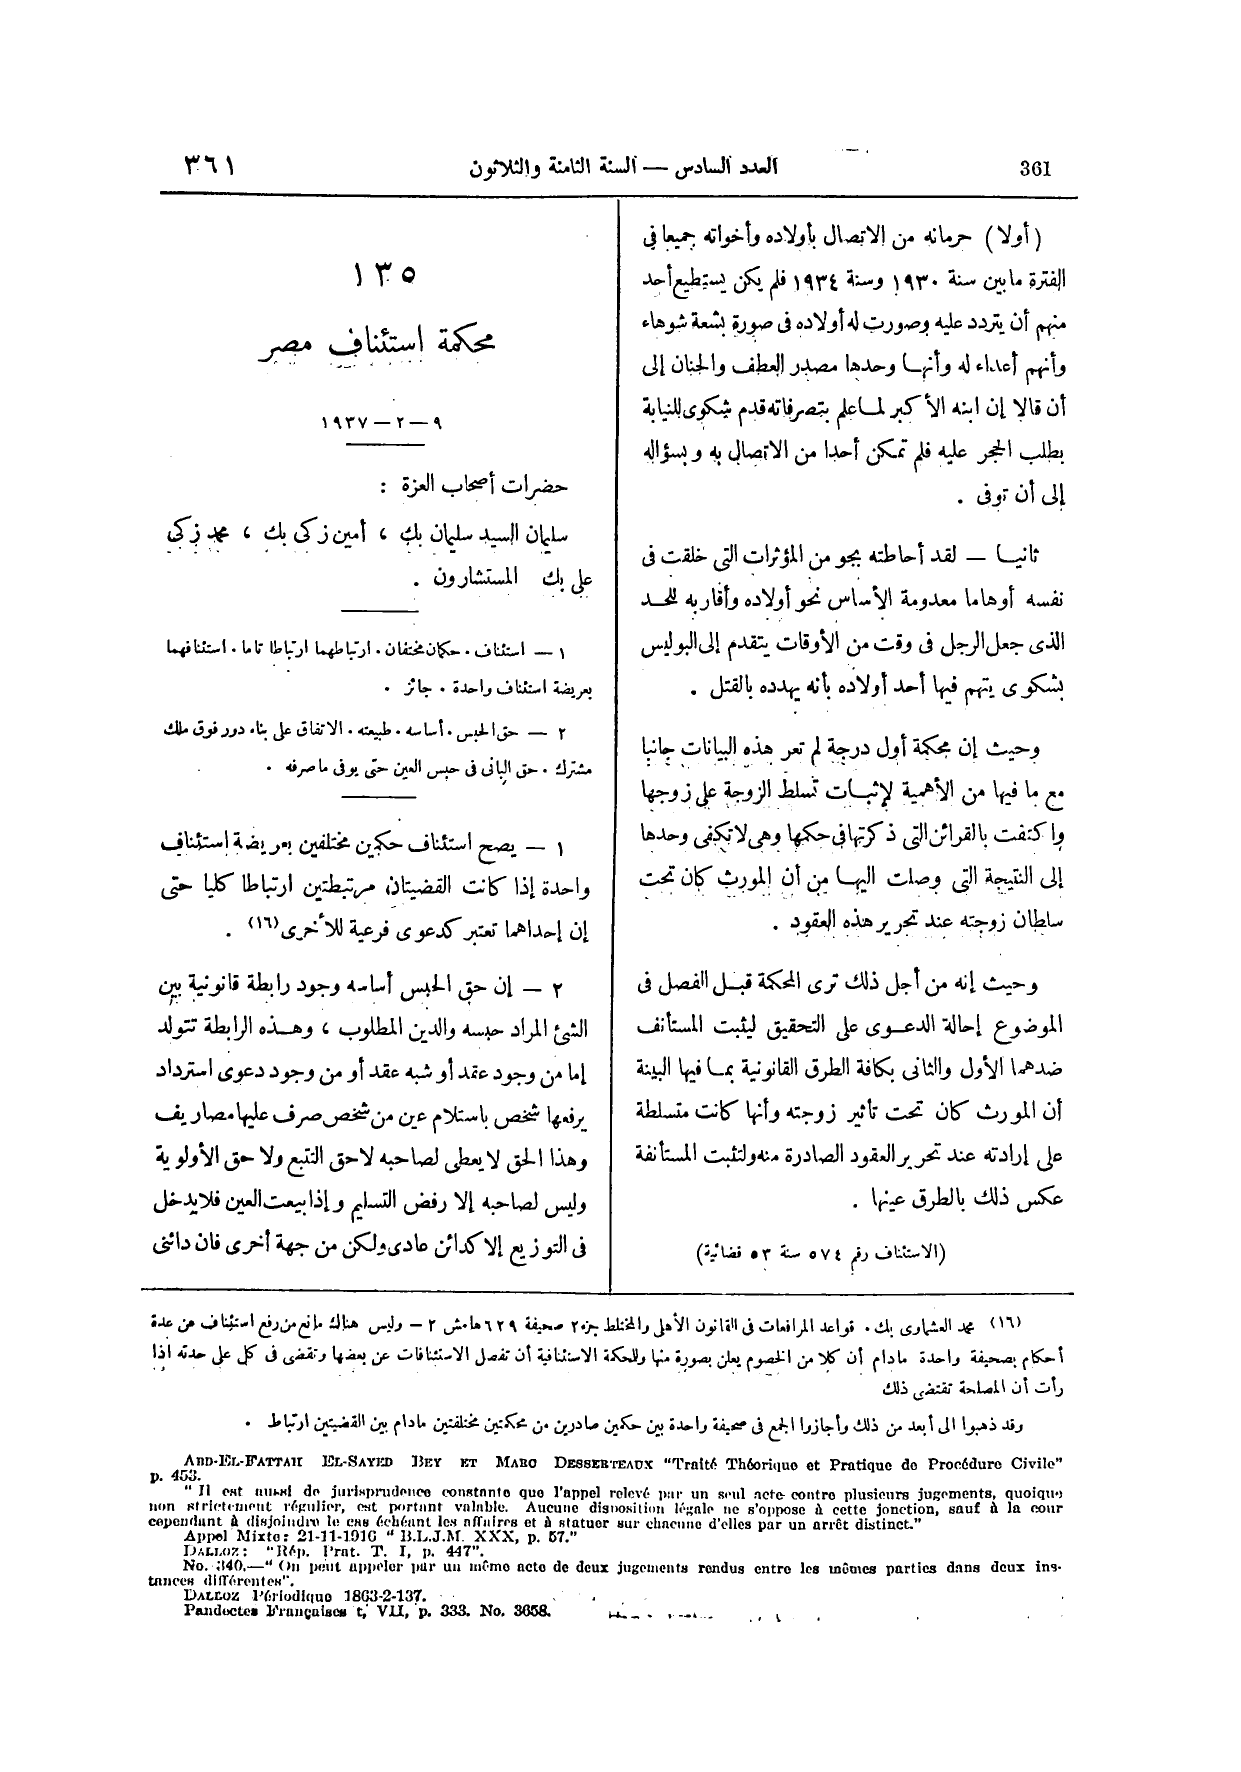 361
العدد السادس — السنة الثامنة والثلاثون
٣٦١
(أولا) حرمانه من الاتصال بأولاده وأخواته جميعا فى
الفترة ما بين سنة ١٩٣٠ وسنة ١٩٣٤ فلم يكن يستطيع أحد
منهم أن يتردد عليه وصورت له أولاده فى صورة بشعة شوهاء
وأنهم أعداء له وأنها وحدها مصدر العطف والحنان إلى
أن قالا إن ابنه الأكبر لما علم بتصرفاته قدم شكوى للنيابة
بطلب الحجر عليه فلم تمكن أحدا من الاتصال به وبسؤاله
إلى أن توفى .
ثانيا — لقد أحاطته بجو من المؤثرات التى خلقت فى
نفسه أوهاما معدومة الأساس نحو أولاده وأقاربه للحد
الذى جعل الرجل فى وقت من الأوقات يتقدم إلى البوليس
بشكوى يتهم فيها أحد أولاده بأنه يهدده بالقتل .
وحيث إن محكمة أول درجة لم تعر هذه البيانات جانبا
مع ما فيها من الأهمية لإثبات تسلط الزوجة على زوجها
واكتفت بالقرائن التى ذكرتها فى حكمها وهى لا تكفى وحدها
إلى النتيجة التى وصلت اليها من أن المورث كان تحت
سلطان زوجته عند تحرير هذه العقود .
وحيث إنه من أجل ذلك ترى المحكمة قبل الفصل فى
الموضوع إحالة الدعوى على التحقيق ليثبت المستأنف
ضدهما الأول والثانى بكافة الطرق القانونية بما فيها البينة
أن المورث كان تحت تأثير زوجته وأنها كانت متسلطة
على إرادته عند تحرير العقود الصادرة منه ولتثبت المستأنفة
عكس ذلك بالطرق عينها .
(الاستئناف رقم ٥٧٤ سنة ٥٣ قضائية)
١٣٥
محكمة استئناف مصر
٩ — ٢ — ١٩٣٧
حضرات أصحاب العزة :
سليمان السيد سليمان بك ، أمين زكى بك ، محمد زكى
على بك المستشارون .
١ — استئناف . حكمان مختلفان . ارتباطهما ارتباطا تاما . استئنافهما
بعريضة استئناف واحدة . جائز .
٢ — حق الحبس . أساسه . طبيعته . الاتفاق على بناء دور فوق ملك
مشترك . حق البانى فى حبس العين حتى يوفى ما صرفه .
١ — يصح استئناف حكمين مختلفين بعريضة استئناف
واحدة إذا كانت القضيتان مرتبطتين ارتباطا كليا حتى
إن إحداهما تعتبر كدعوى فرعية للأخرى (١٦) .
٢ — إن حق الحبس أساسه وجود رابطة قانونية بين
الشئ المراد حبسه والدين المطلوب ، وهذه الرابطة تتولد
إما من وجود عقد أو شبه عقد أو من وجود دعوى استرداد
يرفعها شخص باستلام عين من شخص صرف عليها مصاريف
وهذا الحق لا يعطى لصاحبه لا حق التتبع ولا حق الأولوية
وليس لصاحبه إلا رفض التسليم وإذا بيعت العين فلا يدخل
فى التوزيع إلا كدائن عادى ولكن من جهة أخرى فان دائنى
(١٦) محمد العشماوى بك . قواعد المرافعات فى القانون الأهلى والمختلط جزء ٢ صحيفة ٦٢٩ هامش ٢ — وليس هناك مانع من رفع استئناف عن عدة
أحكام بصحيفة واحدة مادام أن كلا من الخصوم يعلن بصورة منها وللمحكمة الاستئنافية أن تفصل الاستئنافات عن بعضها وتقضى فى كل على حدته إذا
رأت أن المصلحة تقتضى ذلك
وقد ذهبوا الى أبعد من ذلك وأجازوا الجمع فى صحيفة واحدة بين حكمين صادرين من محكمتين مختلفتين مادام بين القضيتين ارتباط .
ABD-EL-FATTAH EL-SAYED BEY ET MARC DESSERTEAUX "Traité Théorique et Pratique de Procédure Civile"
p. 453.
" Il est aussi de jurisprudence constante que l'appel relevé par un seul acte contre plusieurs jugements, quoique
non strictement régulier, est portant valable. Aucune disposition légale ne s'oppose à cette jonction, sauf à la cour
cependant à disjoindre le cas échéant les affaires et à statuer sur chacune d'elles par un arrêt distinct."
Appel Mixte: 21-11-1916 " B.L.J.M. XXX, p. 57."
DALLOZ: "Rép. Prat. T. I, p. 447".
No. 340.—" On peut appeler par un même acte de deux jugements rendus entre les mêmes parties dans deux ins-
tances différentes".
DALLOZ Périodique 1863-2-137.
Pandectes Françaises t, VII, p. 333. No. 3658.